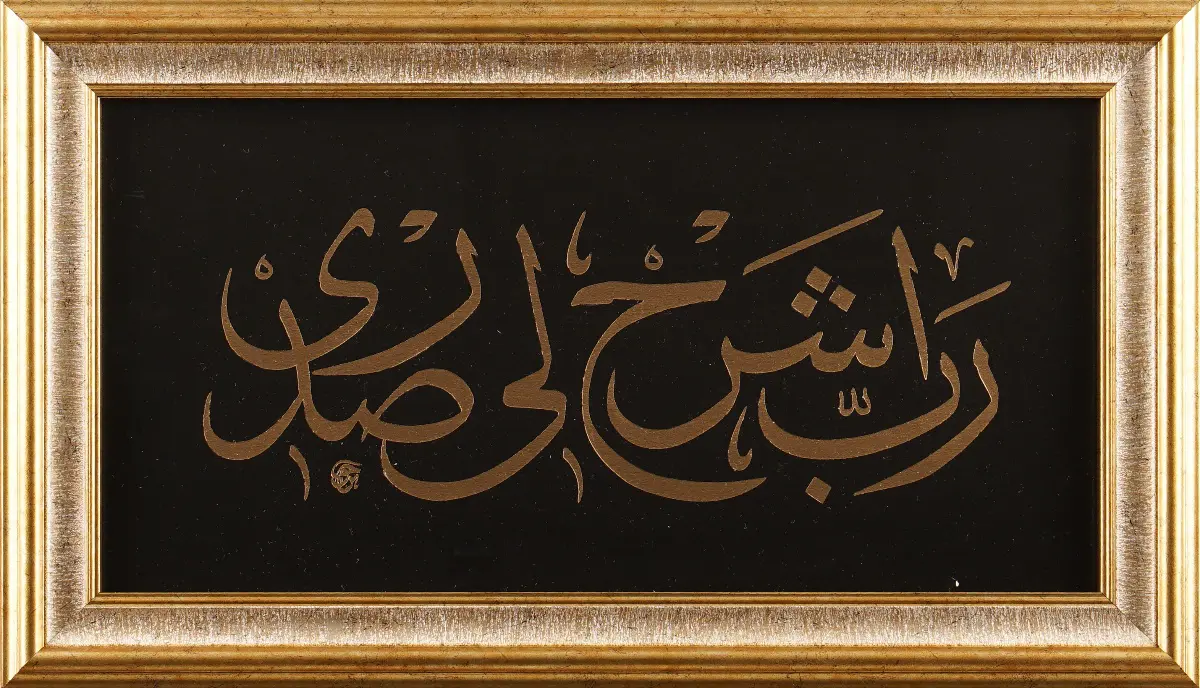 رَبِّ اشْرَحْ لِي صَدْرِي